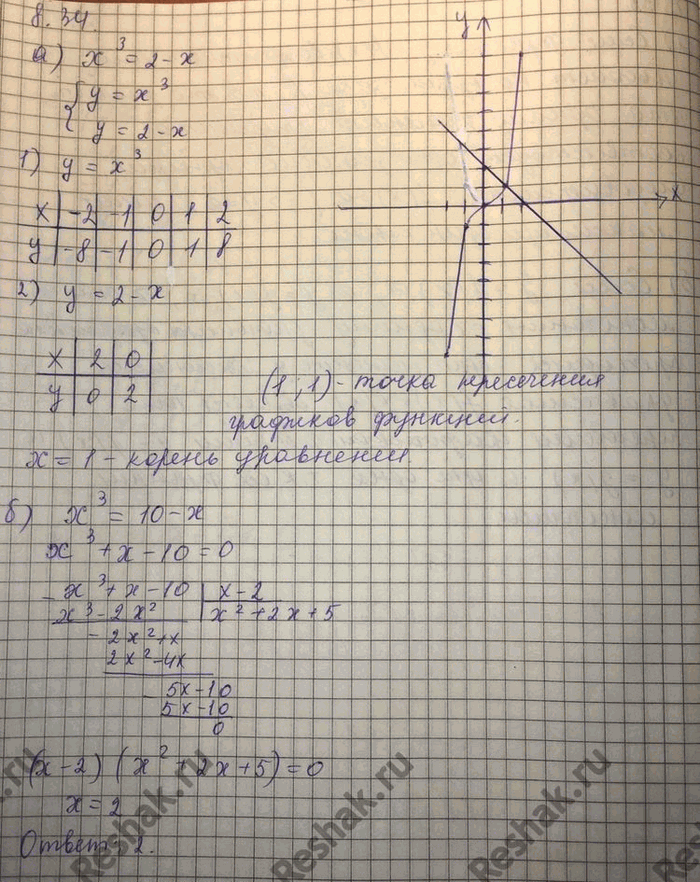 8.34.
а) x³ = 2 - x
{ y = x³
y = 2 - x
1) y = x³
x | -2 | -1 | 0 | 1 | 2
y | -8 | -1 | 0 | 1 | 8
2) y = 2 - x
x | 2 | 0
y | 0 | 2
y
x
(1; 1) - точка пересечения
графиков функций.
x = 1 - корень уравнения
б) x³ = 10 - x
x³ + x - 10 = 0
- x³ + x - 10 | x - 2
x³ - 2x² | x² + 2x + 5
- 2x² + x
2x² - 4x
- 5x - 10
5x - 10
0
(x - 2) (x² + 2x + 5) = 0
x = 2
Ответ: 2.
Reshak.ru
Reshak.ru
Reshak.ru